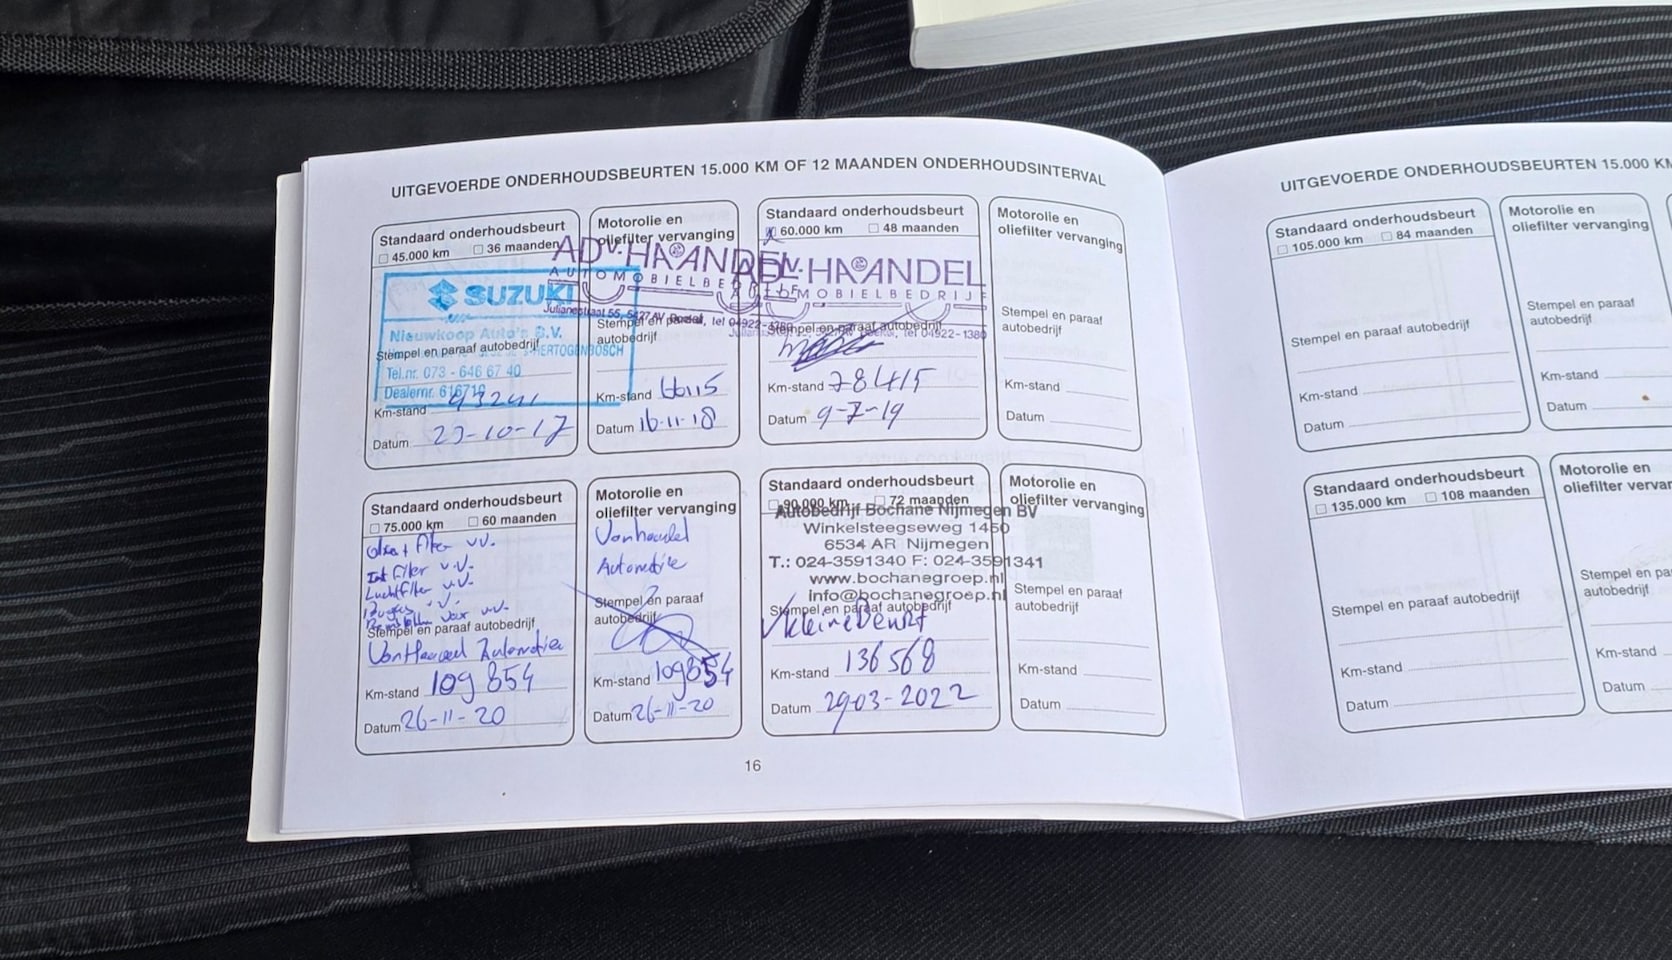 UITGEVOERDE ONDERHOUDSBEURTEN 15.000 KM OF 12 MAANDEN ONDERHOUDSINTERVAL
Standaard onderhoudsbeurt
45.000 km 36 maanden
SUZUKI
Nieuwkoop Auto's B.V.
Stempel en paraaf autobedrijf
'S-HERTOGENBOSCH
Tel.nr. 073 - 646 67 40
Dealernr. 616710
Km-stand
Datum 23-10-17
Motorolie en
oliefilter vervanging
AD v. HAANDEL
AUTOMOBIELBEDRIJF
Julianastraat 55, 5427 AV Boekel, tel 04922-1380
Stempel en paraaf
autobedrijf
Km-stand 66115
Datum 16-11-18
Standaard onderhoudsbeurt
60.000 km 48 maanden
AD v. HAANDEL
AUTOMOBIELBEDRIJF
tel 04922-1380
Stempel en paraaf autobedrijf
Km-stand 78415
Datum 9-7-19
Motorolie en
oliefilter vervanging
Stempel en paraaf
autobedrijf
Km-stand
Datum
Standaard onderhoudsbeurt
75.000 km 60 maanden
Olie + filter v.v.
Int filter v.v.
Luchtfilter v.v.
Bougies v.v.
v.v.
Stempel en paraaf autobedrijf
Van Haandel Automotive
Km-stand 109854
Datum 26-11-20
Motorolie en
oliefilter vervanging
Vanhaandel
Automotive
Stempel en paraaf
autobedrijf
Km-stand 109854
Datum 26-11-20
Standaard onderhoudsbeurt
90.000 km 72 maanden
Autobedrijf Bochane Nijmegen BV
Winkelsteegseweg 1450
6534 AR Nijmegen
T.: 024-3591340 F: 024-3591341
www.bochanegroep.nl
info@bochanegroep.nl
Stempel en paraaf autobedrijf
kleine beurt
Km-stand 136568
Datum 29-03-2022
Motorolie en
oliefilter vervanging
Stempel en paraaf
autobedrijf
Km-stand
Datum
16
UITGEVOERDE ONDERHOUDSBEURTEN 15.000 KM
Standaard onderhoudsbeurt
105.000 km 84 maanden
Stempel en paraaf autobedrijf
Km-stand
Datum
Motorolie en
oliefilter vervanging
Stempel en paraaf
autobedrijf
Km-stand
Datum
Standaard onderhoudsbeurt
135.000 km 108 maanden
Stempel en paraaf autobedrijf
Km-stand
Datum
Motorolie en
oliefilter vervar
Stempel en pa
autobedrijf
Km-stand
Datum